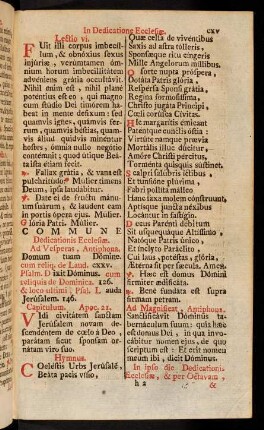 In Dedicatione Ecclesiæ. cxv
Lectio vi.
Fuit illi corpus imbecillum,
& obnoxius sexus
injuriæ, verumtamen omnium horum imbecillitatem
adveniens grátia occultávit.
Nihil mim est, nihil plane
poténtius est eo, qui magno
cum stúdio Dei timórem habet in mente defixum: sed
quamvis ignes, quamvis ferrum, quamvis béstias, quamvis áliud quidvis minéntur
hostes, ómnia nullo negótio
contémnit; quod útique Beatíssima etiam fecit.
℟. Fallax grátia, & vana est
pulchritúdo: Múlier timens
Deum, ipsa laudábitur.
℣. Date ei de fructu mánuum suárum, & laudent eam
in portis ópera ejus. Múlier.
Glória Patri. Múlier.
COMMUNE
Dedicationis Ecclesiæ.
Ad Vesperas, Antiphona.
Domum tuam Dómine.
cum reliq. de Laud. cxxv.
Psalm. Dixit Dóminus. cum
reliquis de Dominica. 126.
& loco ultimi; Psal. Lauda
Jerúsalem. 146.
Capitulum. Apoc. 21.
Vidi civitátem sanctam
Jerúsalem novam descendéntem de cœlo à Deo,
parátam sicut sponsam ornátam viro suo.
Hymnus.
Cœléstis Urbs Jerúsalem,
Beáta pacis vísio,
Quæ celsa de vivéntibus
Saxis ad astra tólleris,
Sponsæque ritu cíngeris
Mille Angelórum míllibus.
O sorte nupta próspera,
Dotáta Patris glória,
Respérsa Sponsi grátia,
Regína formosíssima,
Christo jugáta Príncipi,
Cœli corúsca Cívitas.
Hic margarítis émicant
Paténtque cunctis óstia:
Virtúte namque prævia
Mortális illuc dúcitur,
Amóre Christi pércitus,
Torménta quisquis sústinet.
Scalpri salúbris íctibus,
Et tunsióne plúrima
Fabri políta málleo
Hanc saxa molem cónstruunt,
Aptísque juncta néxibus
Locántur in fastígio.
Decus Parénti débitum
Sit usquequáque Altíssimo,
Natóque Patris único,
Et ínclyto Paráclito,
Cui laus, potéstas, glória,
Ætérna sit per sǽcula. Amen.
℣. Hæc est domus Dómini
fírmiter ædificáta.
℟. Bene fundáta est supra
firmam petram.
Ad Magnificat, Antiphona.
Sanctificávit Dóminus tabernáculum suum: quia hæc
est domus Dei, in qua invocábitur nomen ejus, de quo
scriptum est: Et erit nomen
meum ibi, dicit Dóminus.
In ipso die Dedicationis
Ecclesiæ, & per Octavam,
h 2 &